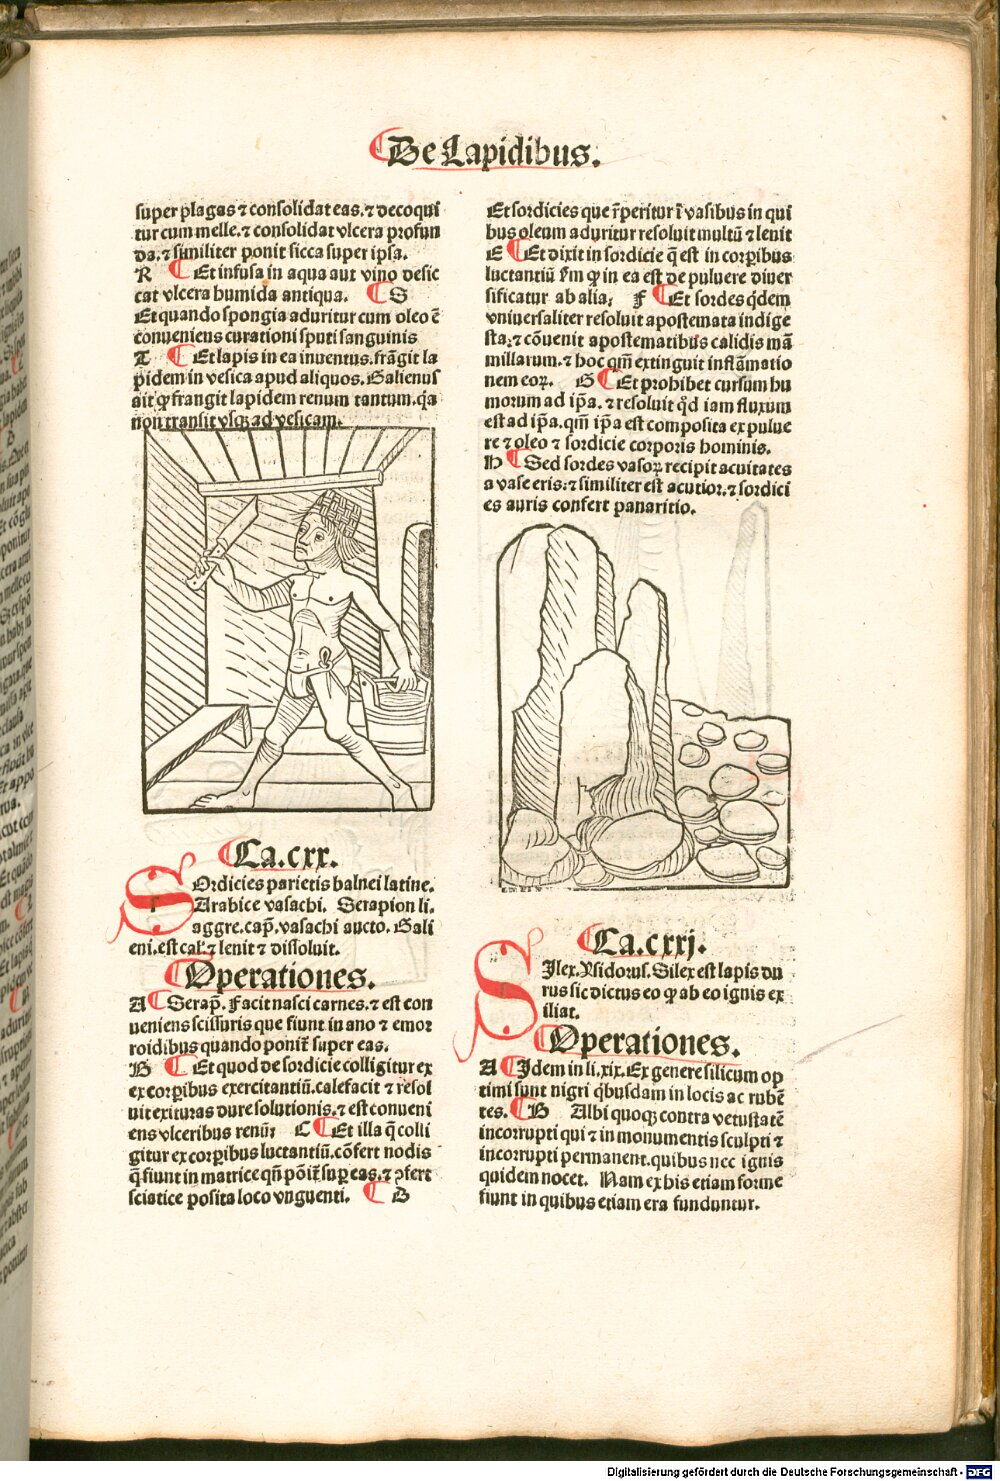 De Lapidibus.
super plagas ⁊ consolidat eas. ⁊ decoqui
tur cum melle. ⁊ consolidat vlcera profun
da. ⁊ similiter ponit̄ sicca super ipsa.
R ¶ Et infusa in aqua aut vino desic
cat vlcera humida antiqua. ¶ S
Et quando spongia aduritur cum oleo ē
conueniens curationi sputi sanguinis
T ¶ Et lapis in ea inuentus. frāgit la
pidem in vesica apud aliquos. Galienus
ait ꝙ frangit lapidem renum tantum. q̄a
non transit vsqꝫ ad vesicam.
¶ Ca. cxx.
SOrdicies parietis balnei latine.
Arabice vasachi. Serapion li.
aggre. cap̄. vasachi aucto. Gali
eni. est cal̄. ⁊ lenit ⁊ dissoluit.
¶ Operationes.
A ¶ Serap̄. Facit nasci carnes. ⁊ est con
ueniens scissuris que fiunt in ano ⁊ emor
roidibus quando ponit̄ super eas.
B ¶ Et quod de sordicie colligitur ex
ex corꝑibus exercitantiū. calefacit ⁊ resol
uit exituras dure solutionis. ⁊ est conueni
ens vlceribus renū; C ¶ Et illa q̄ colli
gitur ex corꝑibus luctantiū. cōfert nodis
q̄ fiunt in matrice qn̄ pōit̄ suꝑ eas. ⁊ ↄfert
sciatice posita loco vnguenti. ¶ D
Et sordicies que r̄peritur ī vasibus in qui
bus oleum aduritur resoluit multū ⁊ lenit
E ¶ Et dixit in sordicie q̄ est in corꝑibus
luctantiū s̄m ꝙ in ea est de puluere diuer
sificatur ab alia; F ¶ Et sordes q̄dem
vniuersaliter resoluit apostemata indige
sta. ⁊ cōuenit apostematibus calidis mā
millarum. ⁊ hoc qm̄ extinguit inflāmatio
nem eoꝝ. G ¶ Et prohibet cursum hu
morum ad ip̄a. ⁊ resoluit qd̄ iam fluxum
est ad ip̄a. qm̄ ip̄a est composita ex pulue
re ⁊ oleo ⁊ sordicie corporis hominis.
H ¶ Sed sordes vasoꝝ recipit acuitates
a vase eris. ⁊ similiter est acutior. ⁊ sordici
es auris confert panaritio.
¶ Ca. cxxj.
SIlex. Ysidorus. Silex est lapis du
rus sic dictus eo ꝙ ab eo ignis ex
iliat.
¶ Operationes.
A ¶ Idem in li. xix. Ex genere silicum op
timi sunt nigri qͥbusdam in locis ac rubē
tes. ¶ B Albi quoqꝫ contra vetustatē
incorrupti qui ⁊ in monumentis sculpti ⁊
incorrupti permanent. quibus nec ignis
quidem nocet. Nam ex his etiam forme
fiunt in quibus etiam era funduntur.
Digitalisierung gefördert durch die Deutsche Forschungsgemeinschaft - DFG